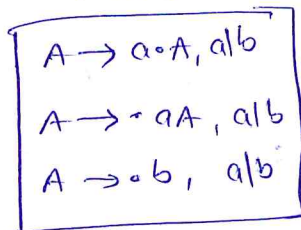 A → a•A, a|b
A → •aA, a|b
A → •b, a|b